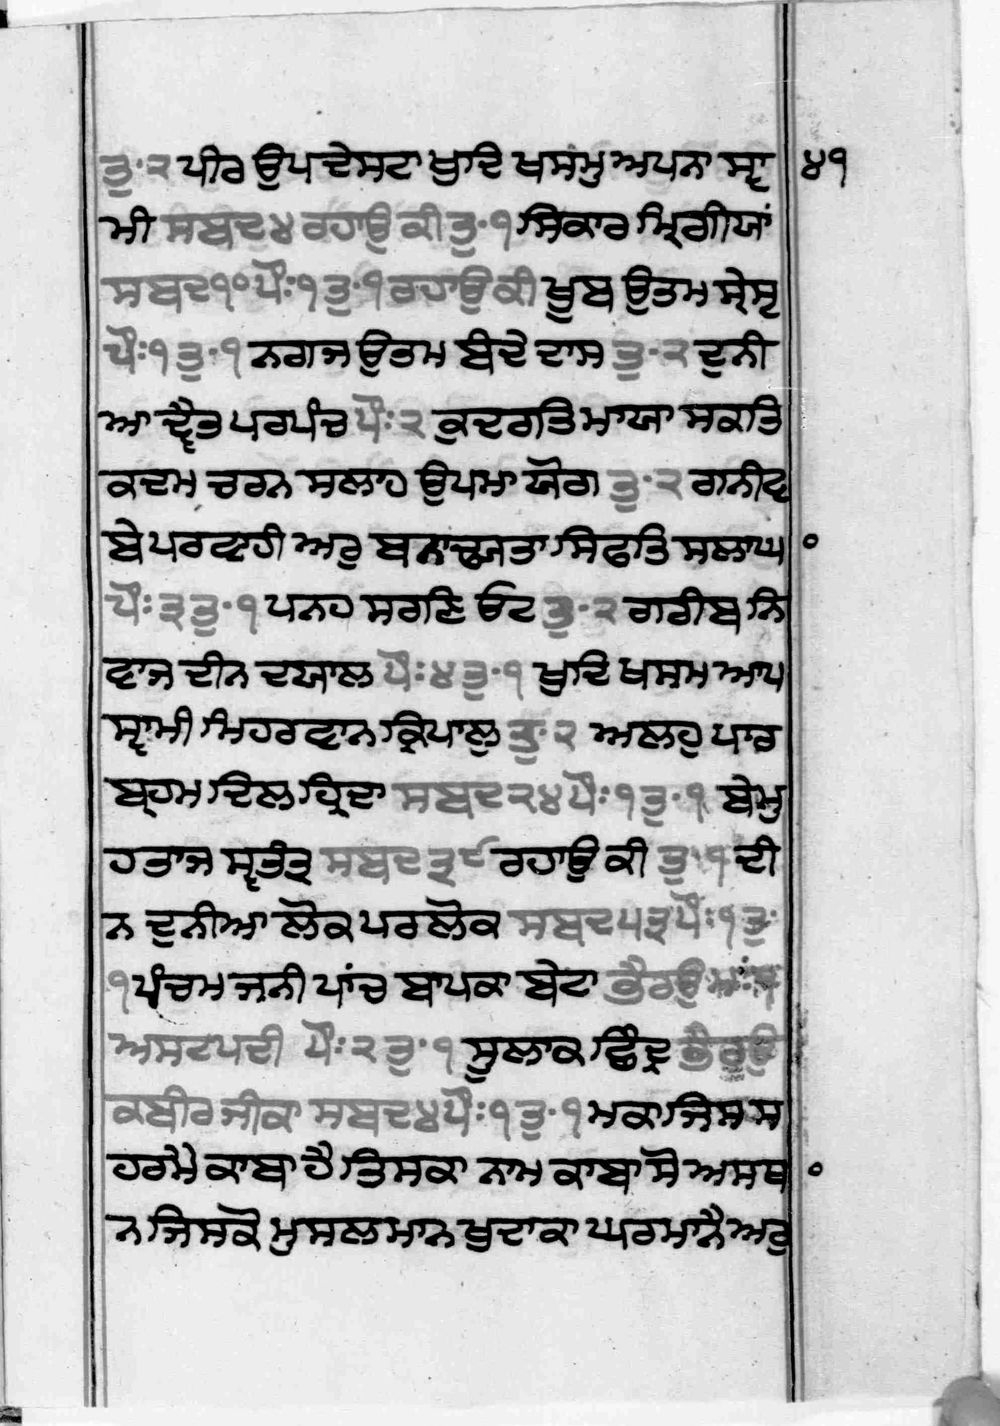 ਤੁ·੨ ਪੀਰ ਉਪਦੇਸਟਾ ਖੁਦਿ ਖਸਮੁ ਅਪਨਾ ਸ੍ਵਾ ੪੧
ਮੀ ਸਬਦ ੪ ਰਹਾਉ ਕੀ ਤੁ·੧ ਸਿਕਾਰ ਮ੍ਰਿਗੀਯਾਂ
ਸਬਦ ੧੦ ਪੌਃ ੧ ਤੁ·੧ ਰਹਾਉ ਕੀ ਖੂਬ ਉਤਮ ਸ੍ਰੇਸ੍ਟ
ਪੌਃ ੧ ਤੁ·੧ ਨਗਜ ਉਤਮ ਬੰਦੇ ਦਾਸ ਤੁ·੨ ਦੁਨੀ
ਆ ਦ੍ਵੈਤ ਪਰਪੰਚ ਪੌਃ ੨ ਕੁਦਰਤਿ ਮਾਯਾ ਸਕਤਿ
ਕਦਮ ਚਰਨ ਸਲਾਹ ਉਪਮਾ ਯੋਗ ਤੁ·੨ ਗਨੀਵ
ਬੇਪਰਵਾਹੀ ਅਰੁ ਬਨਾਢ੍ਯਤਾ ਸਿਫਤਿ ਸਲਾਘ ॰
ਪੌਃ ੩ ਤੁ·੧ ਪਨਹ ਸਰਣਿ ਓਟ ਤੁ·੨ ਗਰੀਬ ਨਿ
ਵਾਜ ਦੀਨ ਦਯਾਲ ਪੌਃ ੪ ਤੁ·੧ ਖੁਦਿ ਖਸਮ ਆਪ
ਸ੍ਵਾਮੀ ਮਿਹਰਵਾਨ ਕ੍ਰਿਪਾਲੁ ਤੁ·੨ ਅਲਹੁ ਪਾਰ
ਬ੍ਰਹਮ ਦਿਲ ਹ੍ਰਿਦਾ ਸਬਦ ੨੪ ਪੌਃ ੧ ਤੁ·੧ ਬੇਮੁ
ਹਤਾਜ ਸ੍ਵਤੰਤ੍ਰ ਸਬਦ ੩੮ ਰਹਾਉ ਕੀ ਤੁ·੧ ਦੀ
ਨ ਦੁਨੀਆ ਲੋਕ ਪਰਲੋਕ ਸਬਦ ੫੩ ਪੌਃ ੧ ਤੁ·
੧ ਪੰਚਮ ਜਨੀ ਪਾਂਚ ਬਾਪਕਾ ਬੇਟਾ ਭੈਰਉ
ਅਸਟਪਦੀ ਪੌਃ ੨ ਤੁ·੧ ਸੂਲਾਕ ਛਿੰਦ੍ਰ ਭੈਰਉ
ਕਬੀਰ ਜੀਕਾ ਸਬਦ ੪ ਪੌਃ ੧ ਤੁ·੧ ਮਕਾ ਜਿਸ ਸ
ਹਰਮੇ ਕਾਬਾ ਹੈ ਤਿਸਕਾ ਨਾਮ ਕਾਬਾ ਸੋ ਅਸਥ ॰
ਨ ਜਿਸਕੋ ਮੁਸਲਮਾਨ ਖੁਦਾਕਾ ਘਰ ਮਾਨੈ ਅਰੁ